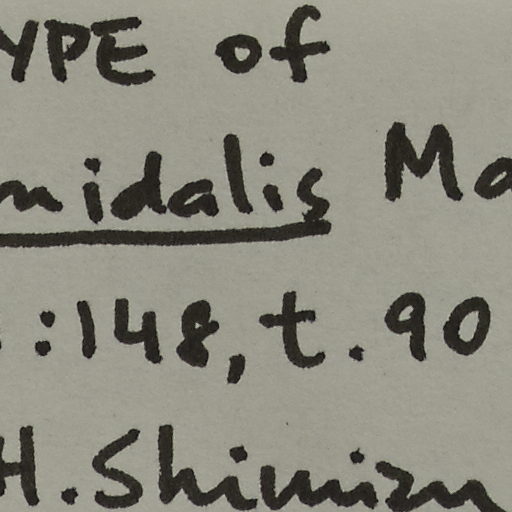 YPE of
midalis Ma
:148, t. 90
H. Shimizu